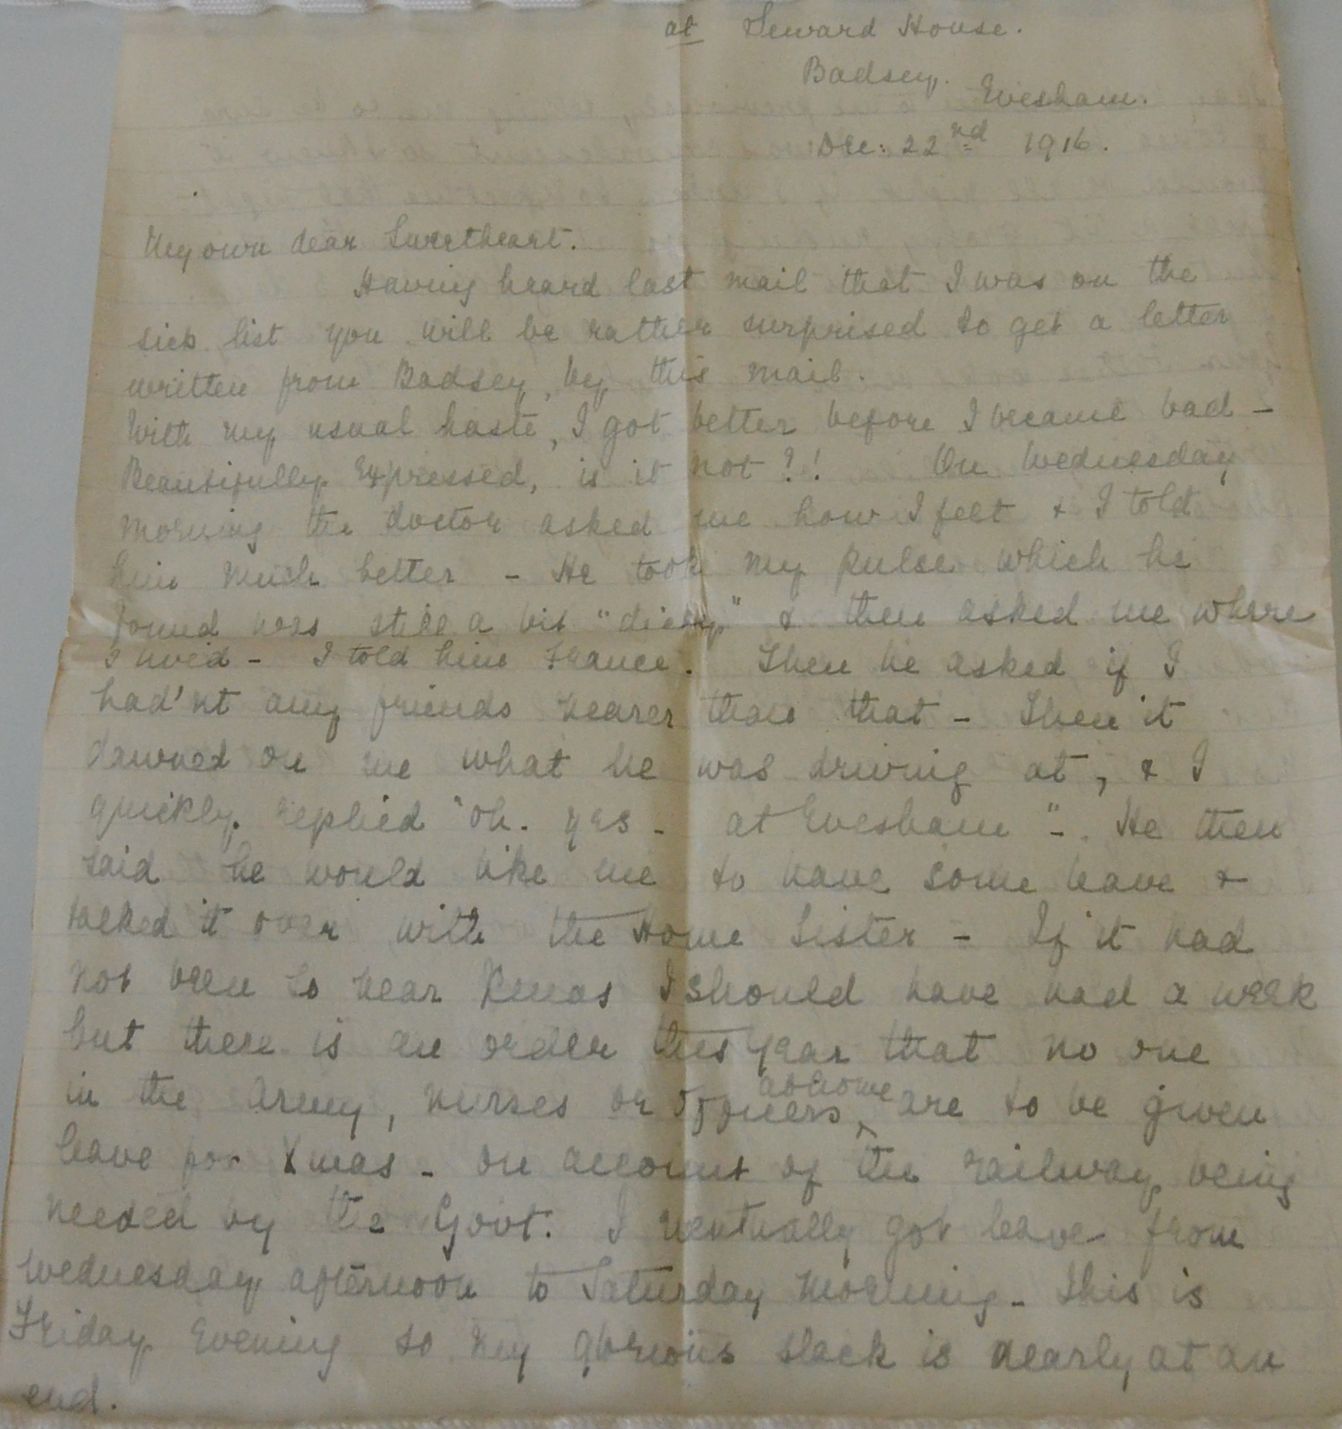 at Seward House.
Badsey.
Evesham.
Dec: 22nd 1916.
My own dear Sweetheart.
Having heard last mail that I was on the
sick list you will be rather surprised to get a letter
written from Badsey, by this mail.
With my usual haste, I got better before I became bad -
Beautifully Expressed, is it not?! On Wednesday
morning the doctor asked me how I felt & I told
him much better - He took my pulse which he
found was still a bit "dicky" & then asked me where
I lived - I told him France. Then he asked if I
had'nt any friends nearer than that - Then it
dawned on me what he was driving at, & I
quickly replied "oh. yes - at Evesham" -. He then
said he would like me to have some leave &
talked it over with the Home Sister - If it had
not been so near Xmas I should have had a week
but there is an order this year that no one
in the Army, nurses or officers, at home are to be given
leave for Xmas - on account of the railway being
needed by the Govt. I eventually got leave from
Wednesday afternoon to Saturday morning - This is
Friday Evening so my glorious slack is nearly at an
end.